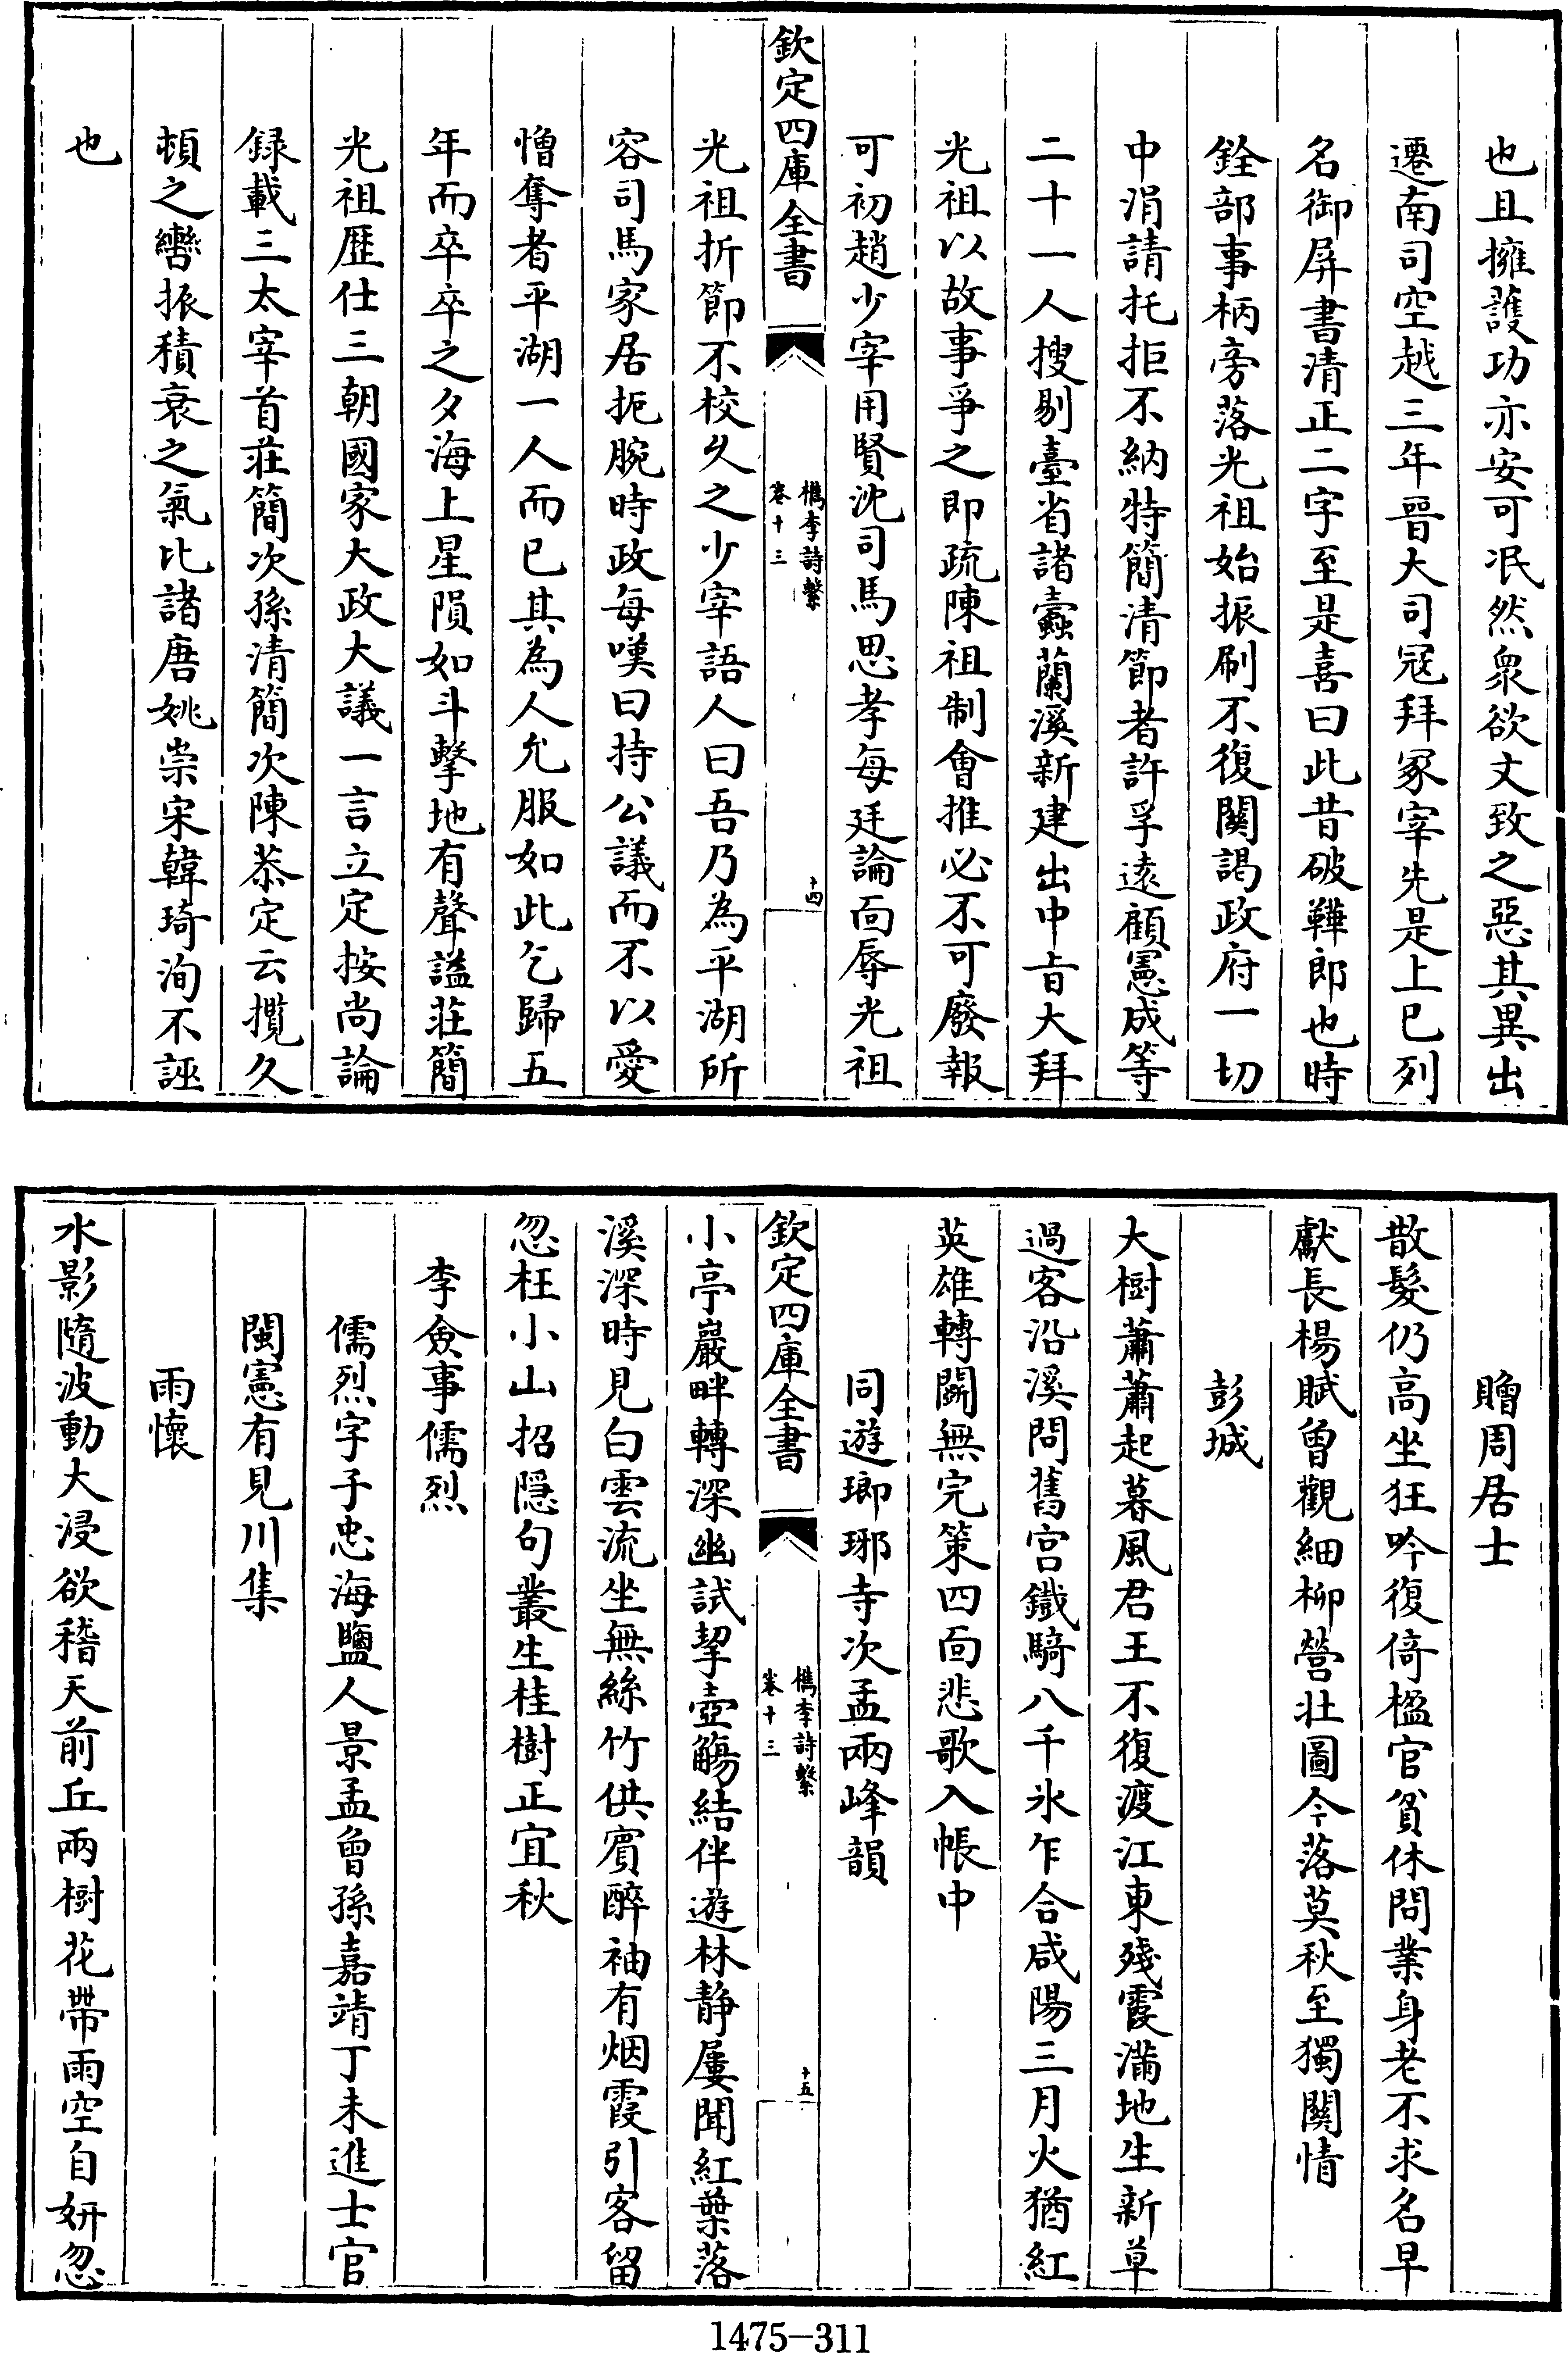 也且擁護功亦安可冺然衆欲丈致之惡其異出
遷南司空越三年晉大司冦拜冢宰先是上已列
名御屏書清正二字至是喜曰此昔破鞾郎也時
銓部事柄旁落光祖始振刷不復關謁政府一切
中涓請托拒不納特簡清節者許孚逺顧憲成等
二十一人搜剔臺省諸蠹蘭溪新建出中㫖大拜
光祖以故事爭之即疏陳祖制會推必不可廢報
可初趙少宰用賢沈司馬思孝每廷論面辱光祖
欽定四庫全書
檇李詩繫
卷十三
十四
光祖折節不校久之少宰語人曰吾乃為平湖所
容司馬家居扼腕時政每嘆曰持公議而不以愛
憎奪者平湖一人而已其為人允服如此乞歸五
年而卒卒之夕海上星隕如斗擊地有聲諡莊簡
光祖歷仕三朝國家大政大議一言立定按尚論
録載三太宰首莊簡次孫清簡次陳恭定云攬久
頓之轡振積衰之氣比諸唐姚崇宋韓琦洵不誣
也
贈周居士
散髮仍高坐狂吟復倚楹官貧休問業身老不求名早
獻長楊賦曾觀細柳營壯圖今落莫秋至獨關情
彭城
大樹蕭蕭起暮風君王不復渡江東殘霞滿地生新草
過客沿溪問舊宫鐵騎八千氷乍合咸陽三月火猶紅
英雄轉鬭無完策四面悲歌入帳中
同遊瑯琊寺次孟兩峰韻
欽定四庫全書
檇李詩繫
卷十三
十五
小亭巖畔轉深幽試挈壺觴結伴遊林靜屢聞紅葉落
溪深時見白雲流坐無絲竹供賓醉袖有烟霞引客留
忽枉小山招隠句叢生桂樹正宜秋
李僉事儒烈
儒烈字子忠海鹽人景孟曾孫嘉靖丁未進士官
閩憲有見川集
雨懷
水影隨波動大浸欲稽天前丘兩樹花帶雨空自妍忽
1475—311